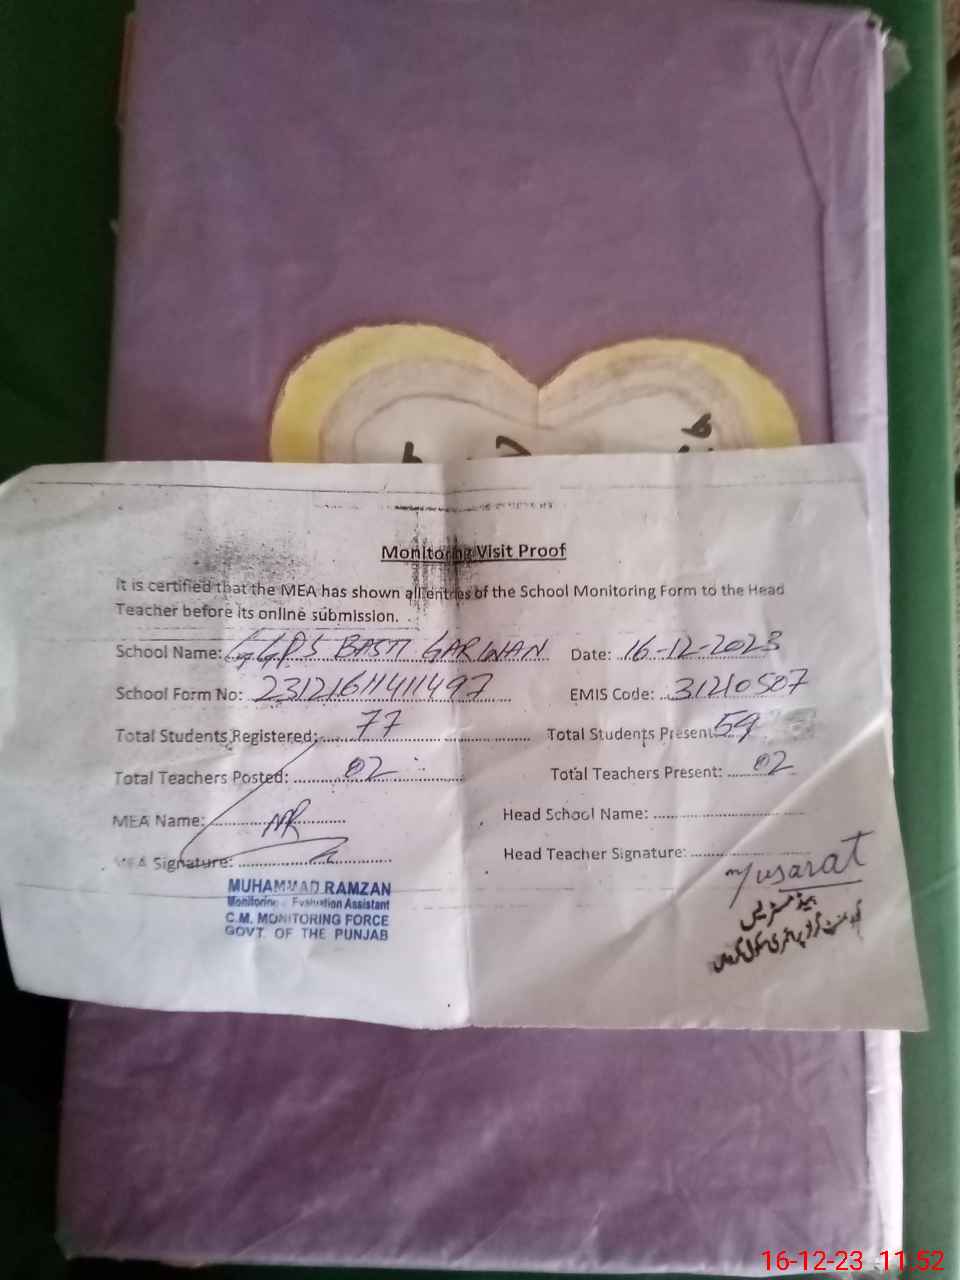 Monitoring Visit Proof
It is certified that the MEA has shown all entries of the School Monitoring Form to the Head
Teacher before its online submission.
School Name: GGPS BASTI GARWAN Date: 16-12-2023
School Form No: 23121611411497 EMIS Code: 31210507
Total Students Registered: 77 Total Students Present: 59
Total Teachers Posted: 02 Total Teachers Present: 02
MEA Name: MR Head School Name:
MEA Signature: Head Teacher Signature:
Musarat
MUHAMMAD RAMZAN
Monitoring Evaluation Assistant
C.M. MONITORING FORCE
GOVT. OF THE PUNJAB
ہیڈ مسٹریس
گورنمنٹ گرلز پرائمری سکول
16-12-23 11:52